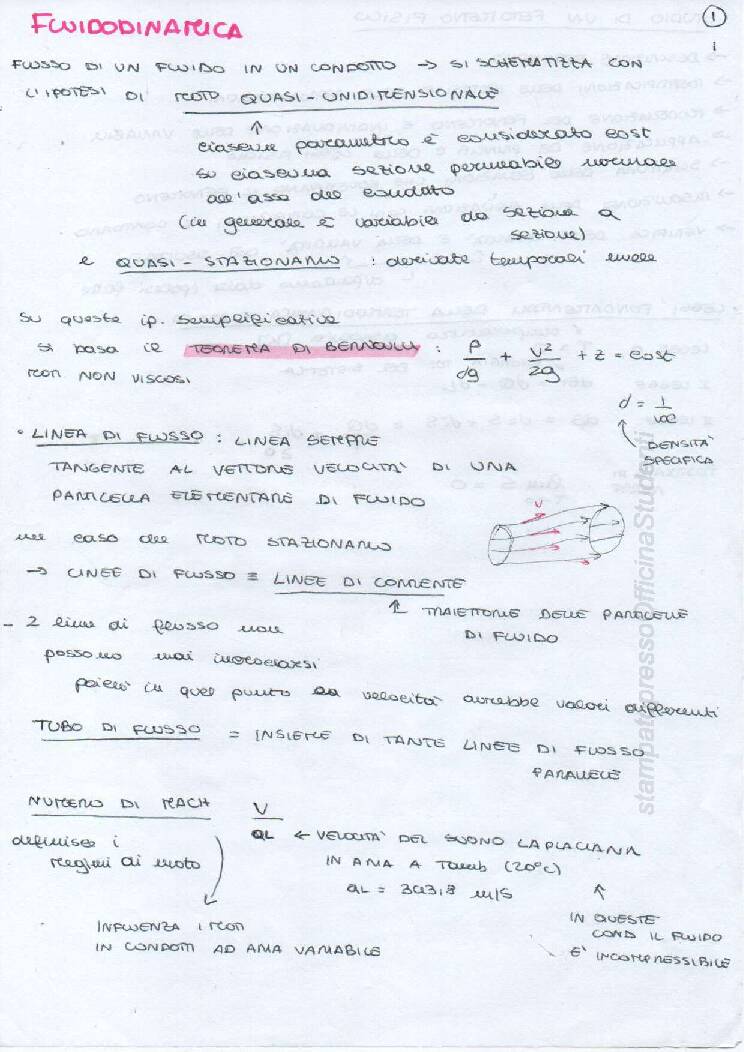 1
FLUIDODINAMICA
FLUSSO DI UN FLUIDO IN UN CONDOTTO → SI SCHEMATIZZA CON
L'IPOTESI DI MOTO QUASI-UNIDIMENSIONALE
↑
ciascun parametro è considerato cost
su ciascuna sezione permeabile normale
all'asse del condotto
(in generale è variabile da sezione a
sezione)
e QUASI-STAZIONARIO : derivate temporali nulle
su queste ip. semplificative
si basa il TEOREMA DI BERNOULLI : P/dg + V²/2g + z = cost
MOTI NON VISCOSI
d = 1/vol
↑ DENSITA'
SPECIFICA
· LINEA DI FLUSSO : LINEA SEMPRE
TANGENTE AL VETTORE VELOCITA' DI UNA
PARTICELLA ELEMENTARE DI FLUIDO
V
nel caso del MOTO STAZIONARIO
→ LINEE DI FLUSSO ≡ LINEE DI CORRENTE
↑ TRAIETTORIE DELLE PARTICELLE
DI FLUIDO
- 2 linee di flusso non
possono mai incrociarsi
poiché in quel punto la velocità avrebbe valori differenti
TUBO DI FLUSSO = INSIEME DI TANTE LINEE DI FLUSSO
PARALLELE
NUMERO DI MACH V/aL ← VELOCITA' DEL SUONO LAPLACIANA
definisce i
regimi di moto
IN ARIA A Tamb (20°C)
aL = 343,8 m/s
↑
IN QUESTE
COND IL FLUIDO
E' INCOMPRESSIBILE
INFLUENZA I MOTI
IN CONDOTTI AD AREA VARIABILE
stampatopressoOfficinaStudenti